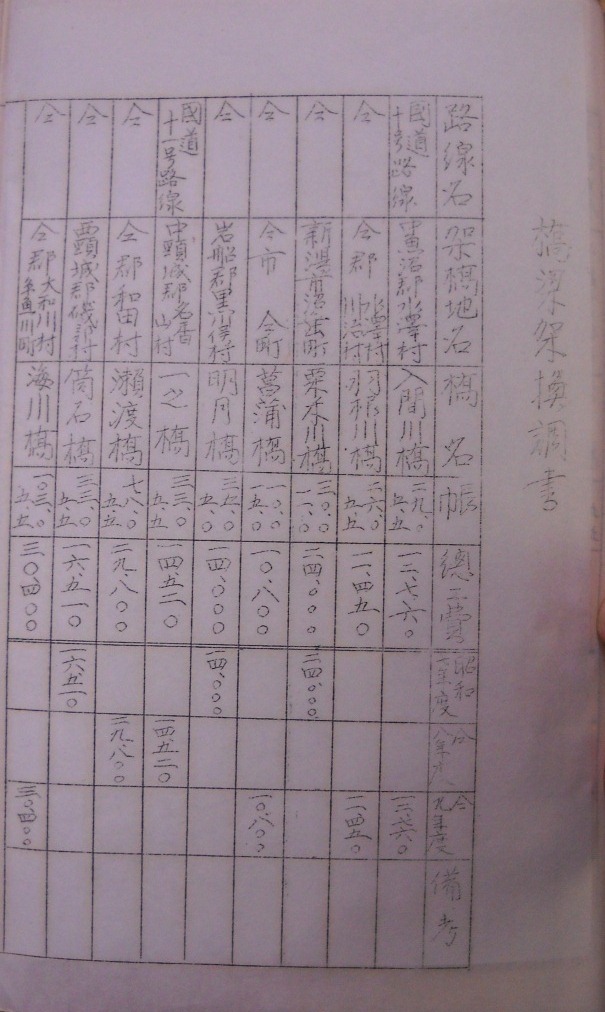 橋梁架換調書
路線名 架橋地名 橋名 幅 總工費 昭和 年度 仝八年度 仝九年度 備考
國道十号路線 中魚沼郡水澤村 入間川橋 二九、〇 五、五 一三、七六〇 一三、七六〇
仝 仝郡 水澤村 川治村 羽根川橋 二六、〇 五、五 一一、四五〇 一一、四五〇
仝 新潟市沼垂町 栗木川橋 三〇、〇 一一、〇 二四、〇〇〇 二四、〇〇〇
仝 仝市 仝町 菖蒲橋 一〇、〇 一五、〇 一〇、八〇〇 一〇、八〇〇
仝 岩船郡黒川俣村 明月橋 五、〇 一四、〇〇〇 一四、〇〇〇
國道十一号路線 中頸城郡名香山村 一之橋 三三、〇 五、五 一四、五二〇 一四、五二〇
仝 仝郡和田村 瀬渡橋 七八、〇 五、五 二九、八〇〇 二九、八〇〇
仝 西頸城郡磯部村 筒石橋 三三、〇 五、五 一六、五一〇 一六、五一〇
仝 仝郡 大和川村 糸魚川町 海川橋 一〇三、〇 五、五 三〇、四〇〇 三〇、四〇〇